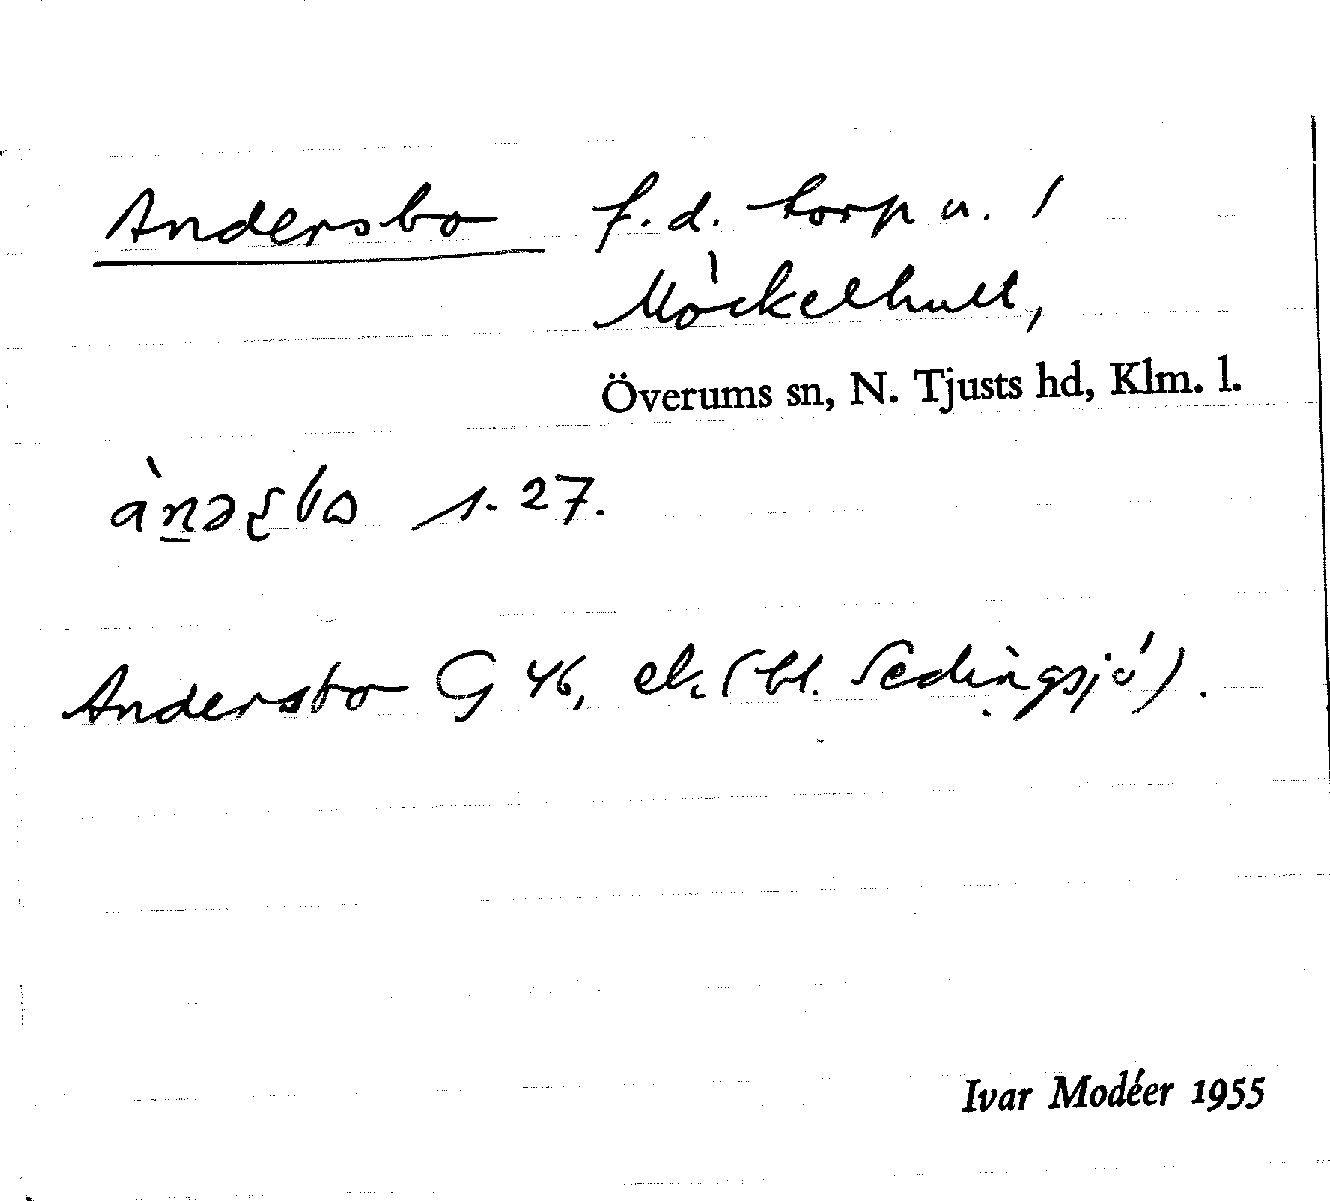 Andersbo f.d. torp u. 1
Möckelhult,
Överums sn, N. Tjusts hd, Klm. l.
s. 27.
Andersbo G 46, ek (bl. Sedingsjö).
Ivar Modéer 1955